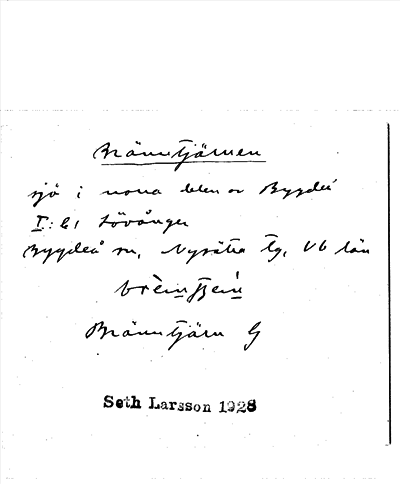 Bränntjärnen
sjö i norra delen av Bygdeå
I: C1 Lövånger
Bygdeå sn, Nysätra tg, Vb län
Bränntjärn G
Seth Larsson 1928